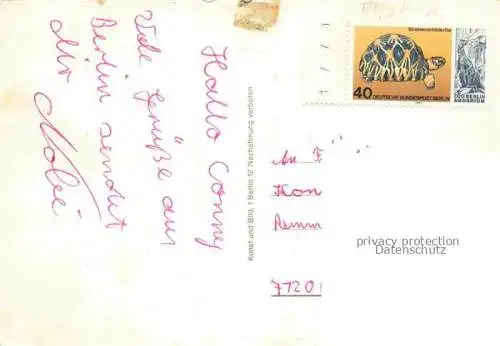 Hallo Conny
Viele Grüße aus
Berlin sendet
dir
Kunst und Bild, 1 Berlin 12 Nachahmung verboten
Strahlenschildkröte
40
DEUTSCHE BUNDESPOST BERLIN
ZOO BERLIN
AQUARIUM
An F
Kon
Remm
7120
privacy protection
Datenschutz